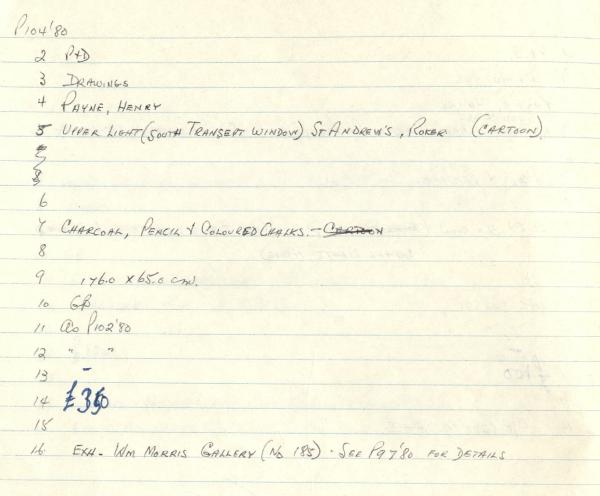 P104'80
2 P+D
3 DRAWINGS
4 PAYNE, HENRY
5 UPPER LIGHT (SOUTH TRANSEPT WINDOW) ST ANDREW'S, ROKER (CARTOON)
6
7 CHARCOAL, PENCIL & COLOURED CHALKS. - CARTOON
8
9 176.0 x 65.0 cm.
10 GB
11 as P102'80
12 " "
13 -
14
15
16 EXH. WM MORRIS GALLERY (No 185). SEE P97'80 FOR DETAILS